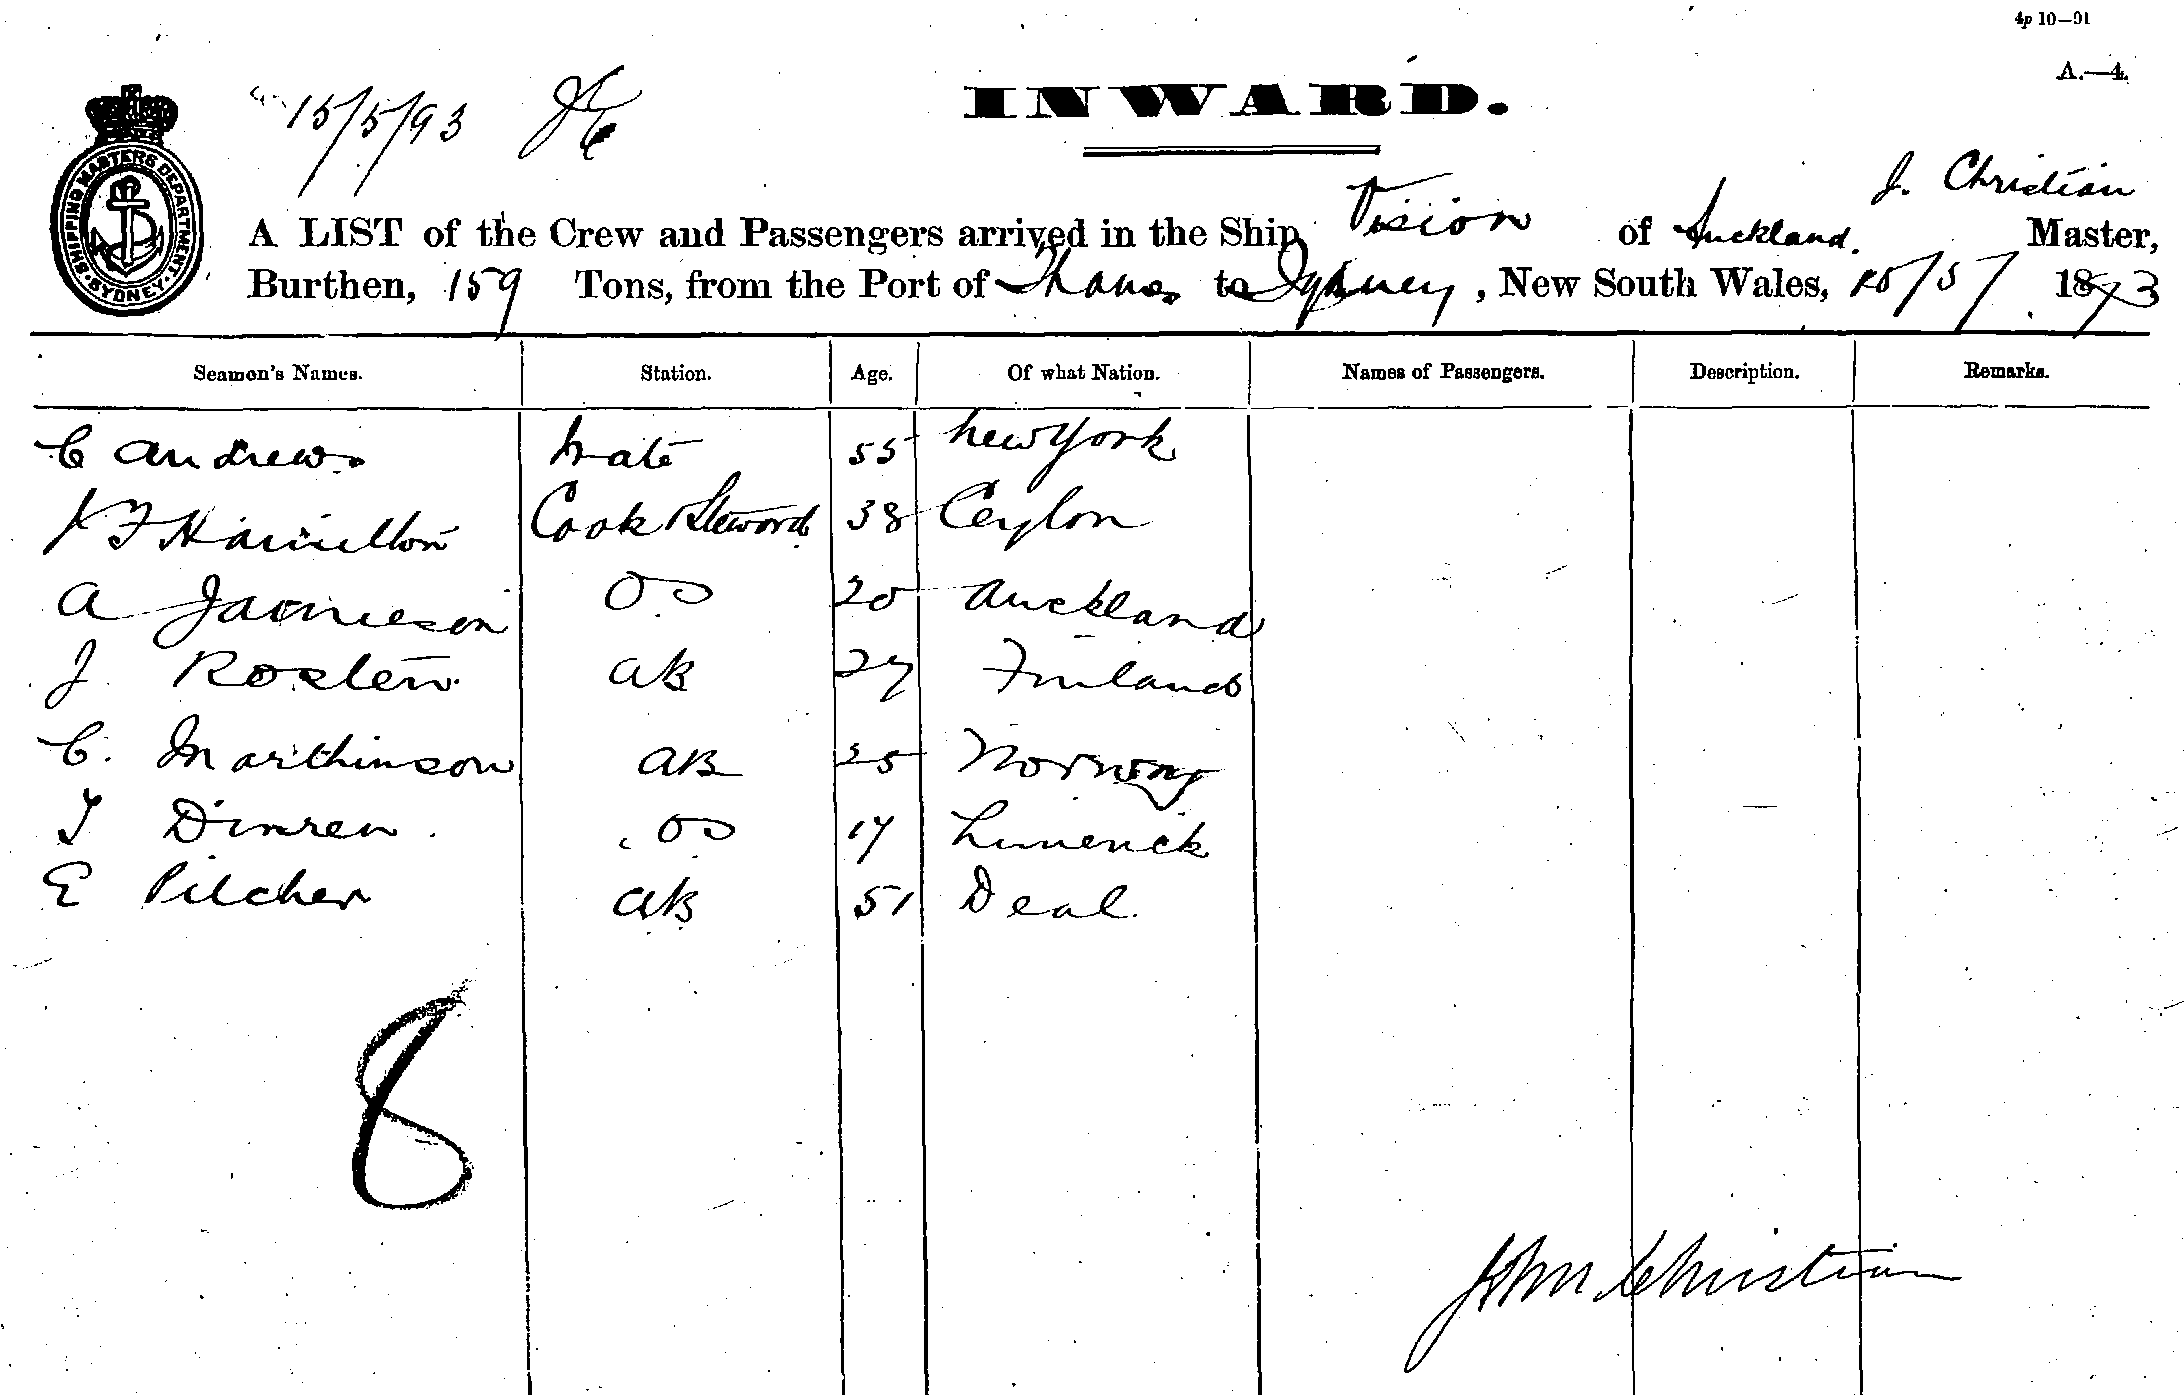 4p 10—91
A.—4.
15/5/93
INWARD.
SHIPPING MASTERS DEPARTMENT SYDNEY
J. Christian
A LIST of the Crew and Passengers arrived in the Ship Vision of Auckland. Master,
Burthen, 159 Tons, from the Port of Thames to Sydney, New South Wales, 15/5/ 1893
Seamen's Names. Station. Age. Of what Nation. Names of Passengers. Description. Remarks.
C Andrews Mate 55 New York
J F Hamilton Cook Steward 38 Ceylon
A Jamieson OS 20 Auckland
J Rosten AB 27 Finland
C. Marthinson AB 25 Norway
T Dinren OS 17 Limerick
E Pilcher AB 51 Deal
8
John Christian